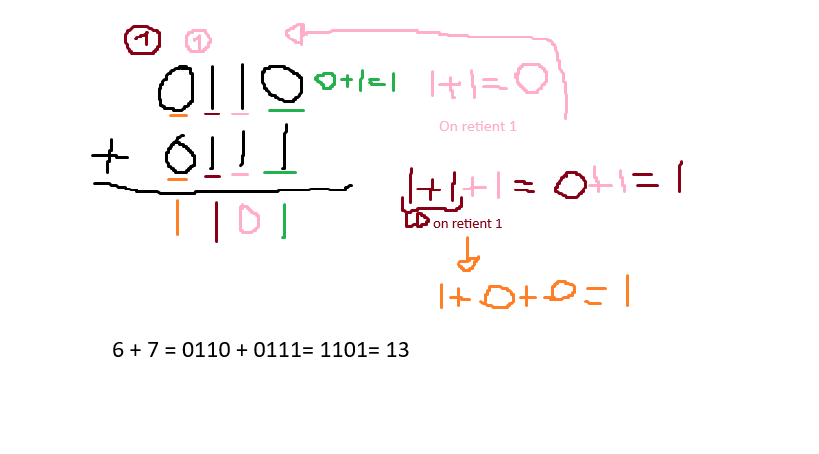 1 1
0110 0+1=1 1+1=0
On retient 1
+ 0111
1+1+1 = 0+1=1
on retient 1
1101
1+0+0=1
6 + 7 = 0110 + 0111= 1101= 13